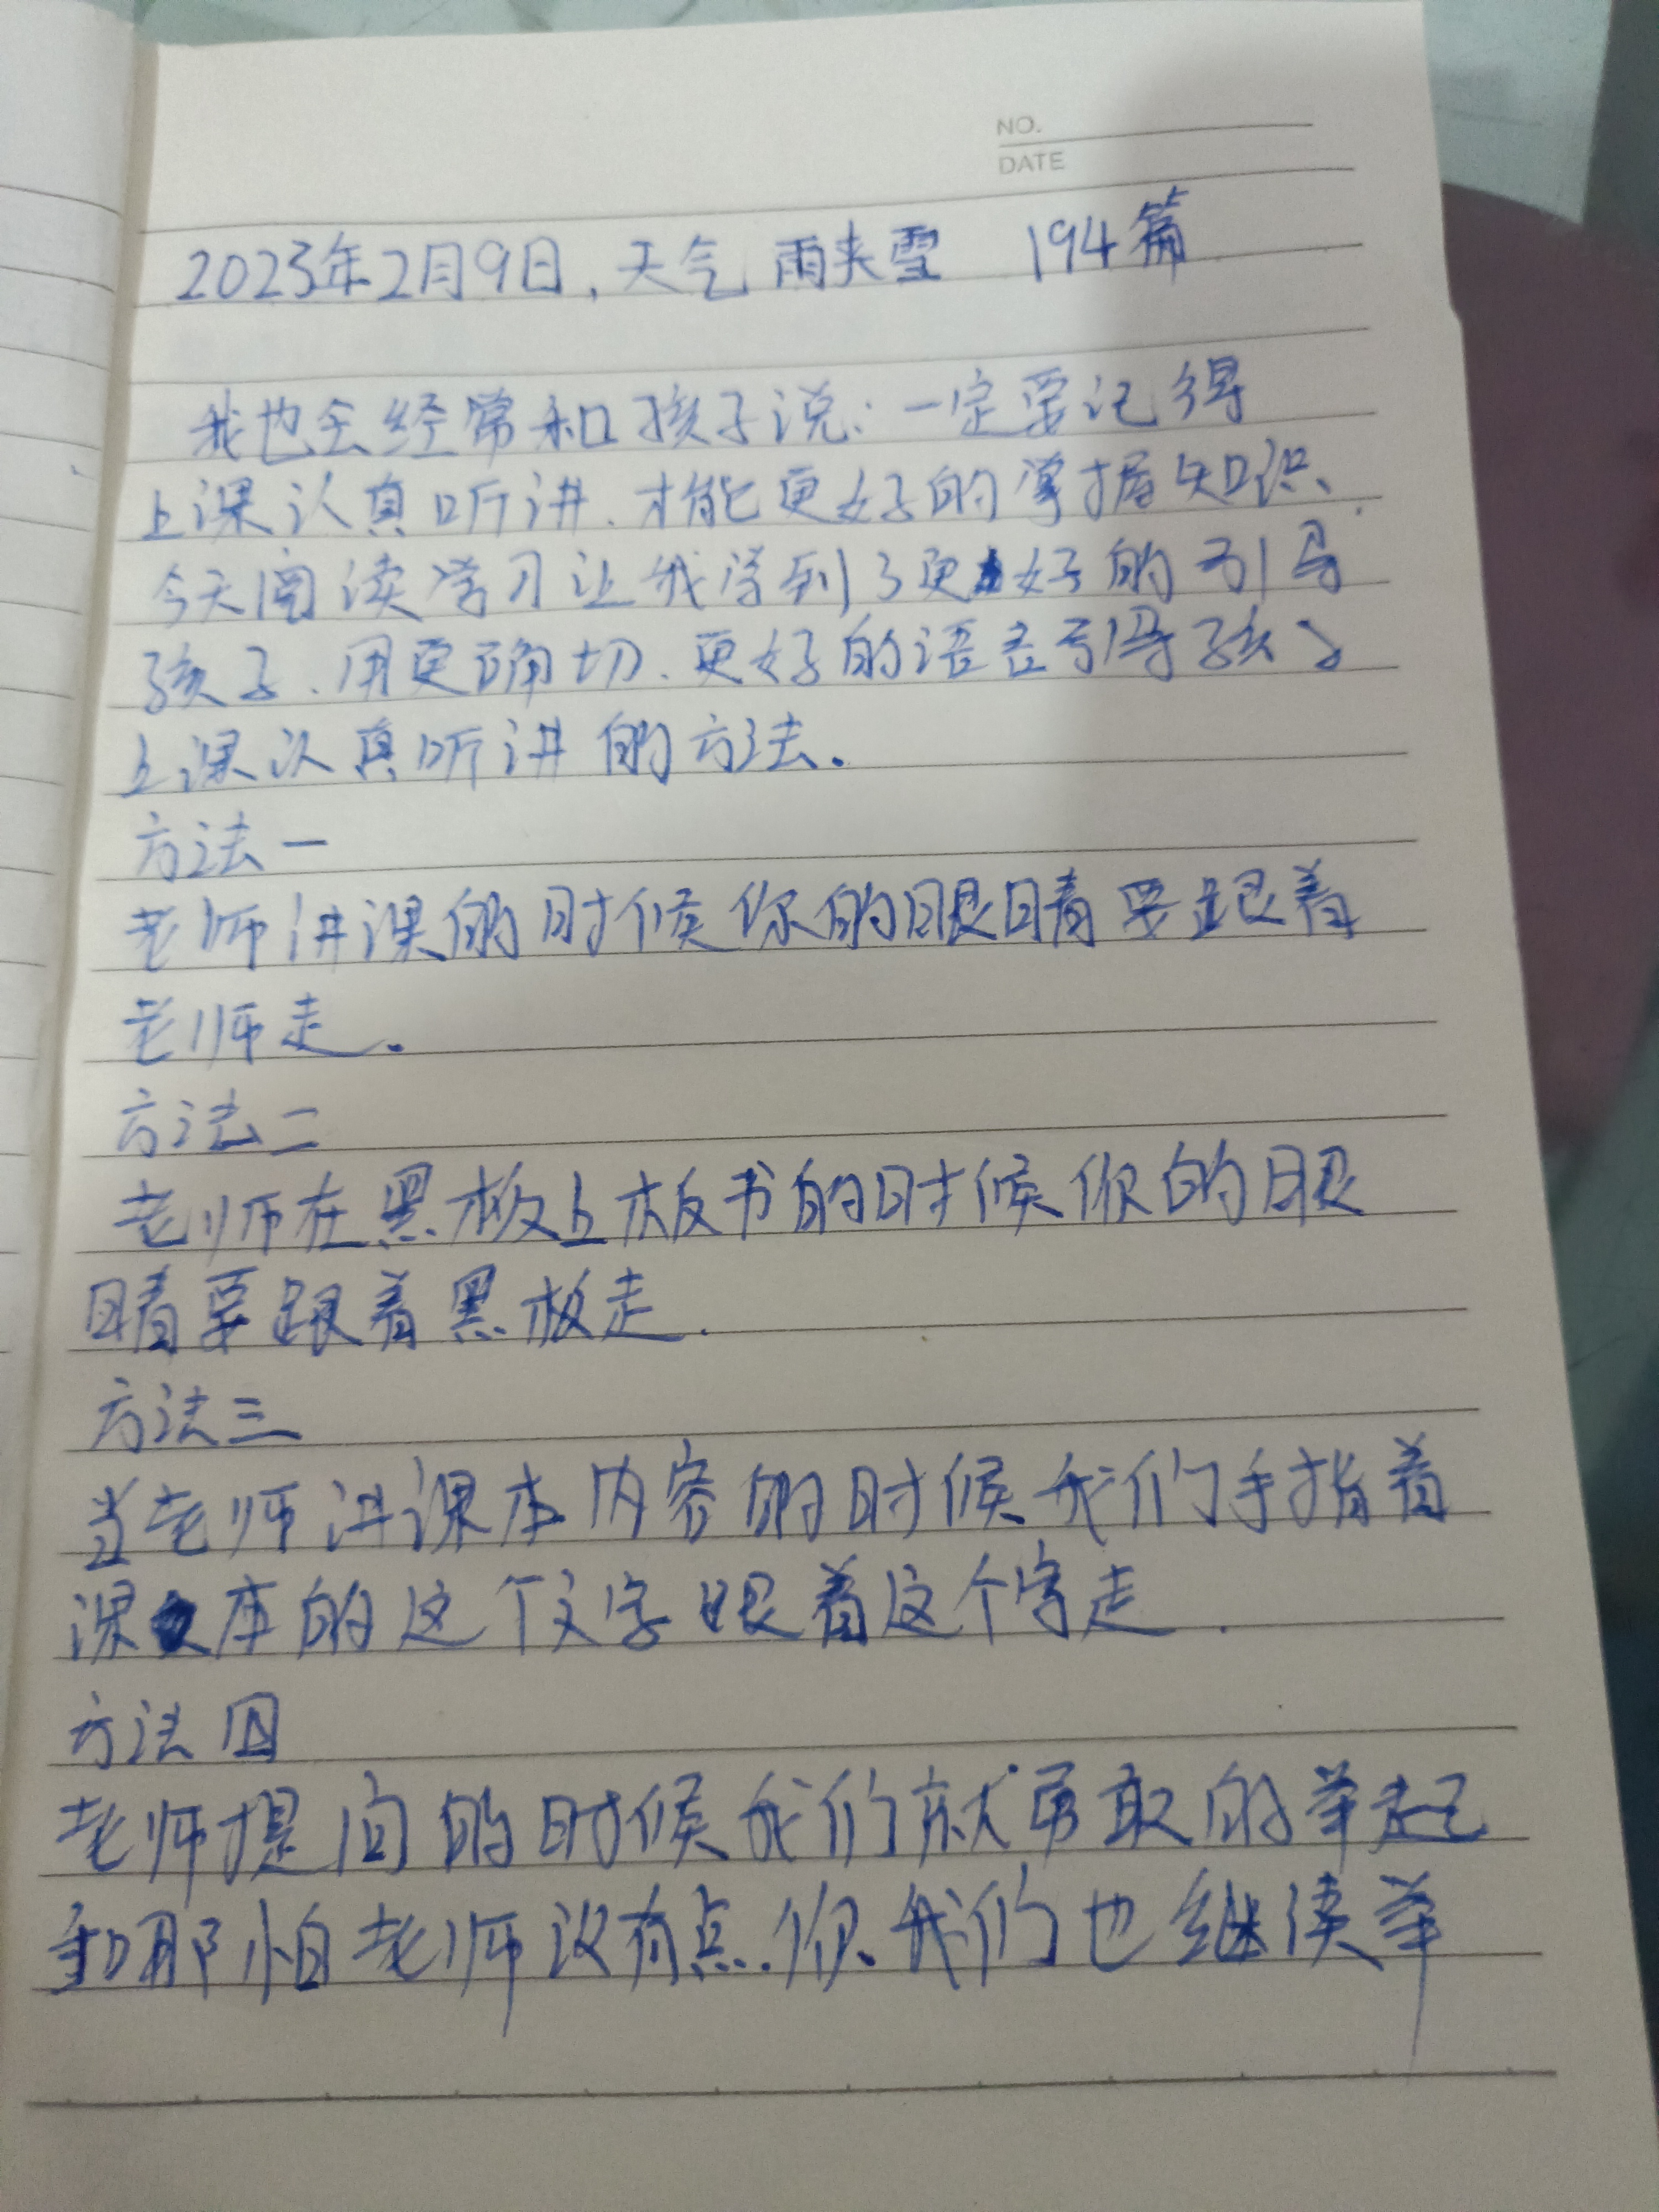 NO.
DATE
2023年2月9日,天气 雨夹雪 194篇
我也会经常和孩子说:一定要记得
上课认真听讲、才能更好的掌握知识、
今天阅读学习让我学到了更好的引导
孩子、用更确切、更好的语言引导孩子
上课认真听讲的方法.
方法一
老师讲课的时候你的眼睛要跟着
老师走.
方法二
老师在黑板上板书的时候你的眼
睛要跟着黑板走.
方法三
当老师讲课本内容的时候我们手指着
课本的这个文字眼着这个字走.
方法四
老师提问的时候我们就勇敢的举起
和那怕老师没有点你、我们也继续举